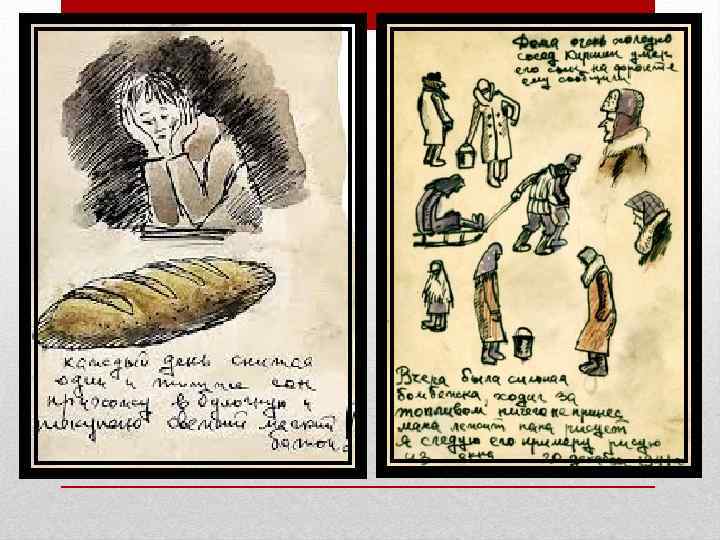 каждый день снится
один и тот же сон
прихожу в булочную и
покупаю свежий мягкий
батон.
Дома очень холодно
сосед Киршин умер
его сын на фронте
ему сообщили
Вчера была сильная
бомбежка, ходил за
топливом ничего не принес
мама лежит папа рисует
я следую его примеру рисую
из окна 30 декабря 1941 г